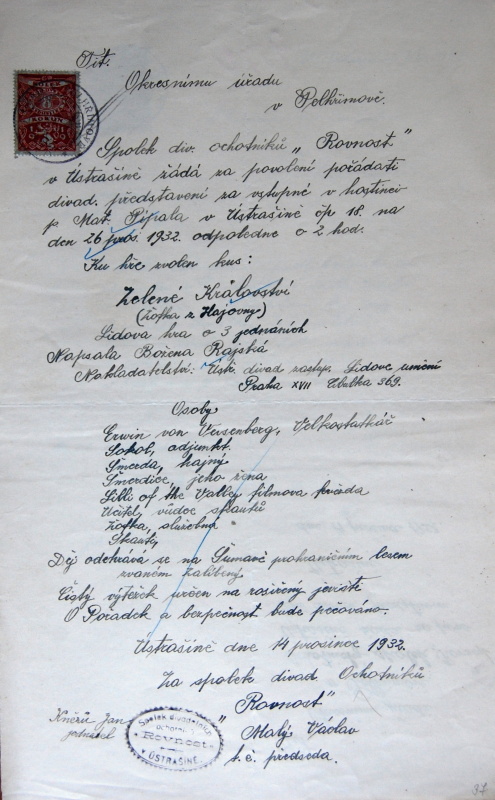 Tit.
Okresnímu úřadu
v Pelhřimově.
Spolek div. ochotníků „Rovnost"
v Ústrašíně žádá za povolení pořádati
divad. představení za vstupné v hostinci
p. Mat. Pípala v Ústrašíně čp 18. na
den 26 pros. 1932. odpoledne o 2 hod.
Ku hře zvolen kus:
Zelené Království
(Žofka z Hájovny)
Lidova hra o 3 jednáních
Napsala Božena Rajská
Nakladatelství: Ústř. divad zastup. Lidove umění
Praha XVII Cibulka 369.
Osoby
Erwin von Veisenberg, Velkostatkář
Sokol, adjunkt.
Šmerda, hajný
Šmerdice, jeho žena
Lilli of the Valley filmova hvězda
Učitel, vůdce skautů
Žofka, služebna
Skauti,
Děj odehrává se na Šumavě pohraničním lesem
zvaném Zalíbený
Čistý výtěžek určen na rozšíření jeviště
O Pořádek a bezpečnost bude pečováno.
Ústrašíně dne 14 prosince 1932.
Za spolek divad Ochotníků
„Rovnost"
Jan
jednatel
Spolek divadelních
ochotníků
ROVNOST
v ÚSTRAŠÍNĚ
Malý Václav
t. č. předseda.
97